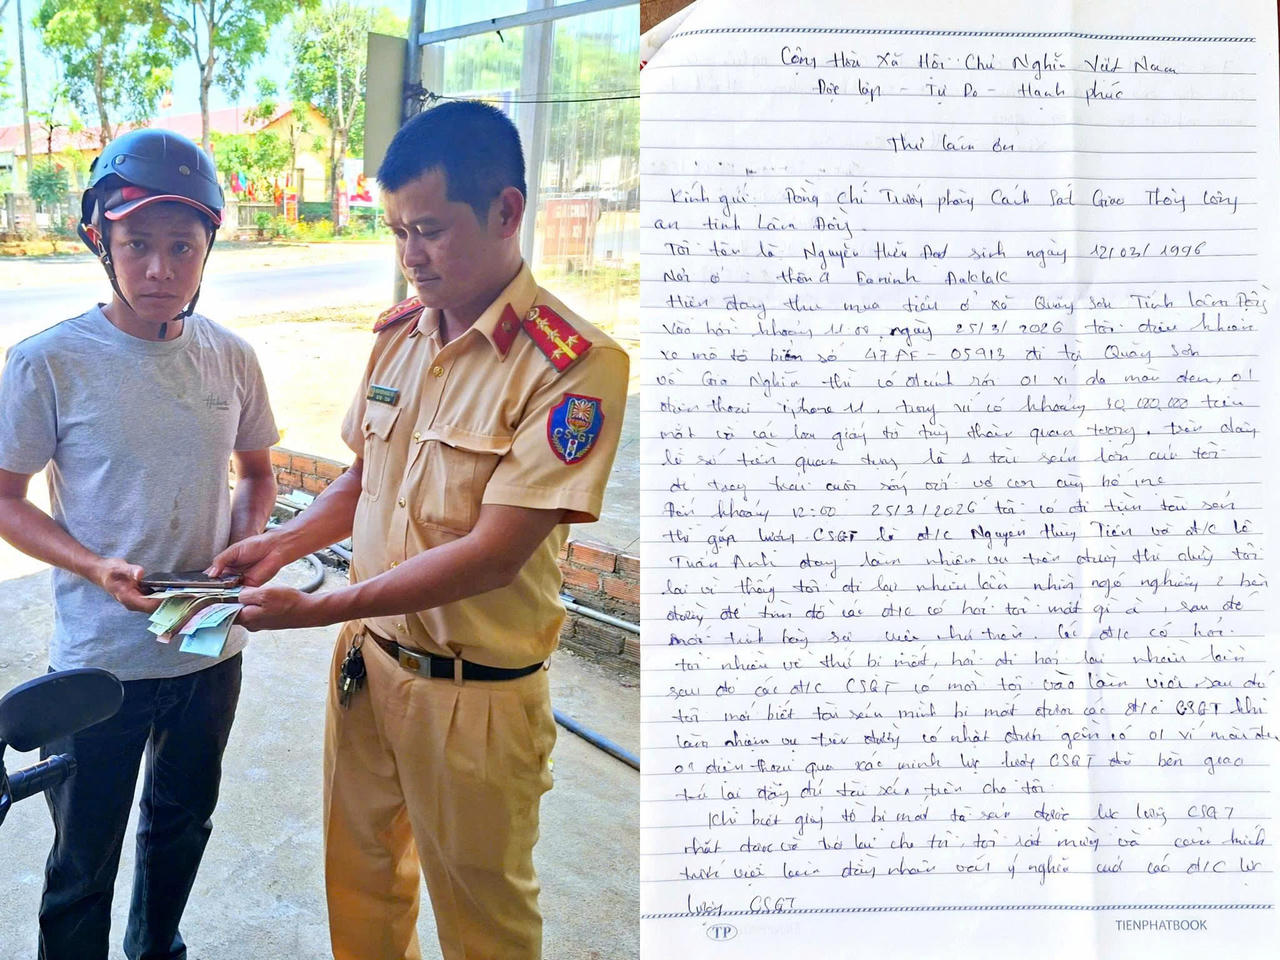 CSGT
Cộng Hòa Xã Hôi Chủ Nghĩa Việt Nam
Độc lập - Tự Do - Hạnh phúc
Thư cảm ơn
Kính gửi: Đồng Chí Trưởng phòng Cảnh Sát Giao Thông Công
an tỉnh Lâm Đồng.
Tôi tên là Nguyễn Hữu Đạt sinh ngày 12/03/1996
Nơi ở: thôn 2 Eaninh Daklak
Hiện đang thu mua tiêu ở xã Quảng Sơn Tỉnh Lâm Đồng
Vào hồi khoảng 11:00 ngày 25/3/2026 tôi điều khiển
xe mô tô biển số 47AF-05913 đi từ Quảng Sơn
về Gia Nghĩa thì có đánh rơi 01 ví da màu đen, 01
điện thoại iphone 11, trong ví có khoảng 30,000,000 tiền
mặt và các loại giấy tờ tùy thân quan trọng. trên đây
là số tiền quan trọng là 1 tài sản lớn của tôi
để trang trải cuộc sống với vợ con cùng bố mẹ
Đến khoảng 12:00 25/3/2026 tôi có đi tìm tài sản
thì gặp lượng CSGT là đ/c Nguyễn Thủy Tiến và đ/c Lê
Tuấn Anh đang làm nhiệm vụ trên đường thì dừng tôi
lại vì thấy tôi đi lại nhiều lần nhìn ngó nghiêng 2 bên
đường để tìm đồ các đ/c có hỏi tôi mất gì à, sau đó
mới trình bày sự việc như trên. Các đ/c có hỏi
tôi nhiều về thứ bị mất, hỏi đi hỏi lại nhiều lần
sau đó các đ/c CSGT có mời tôi vào làm việc, sau đó
tôi mới biết tài sản mình bị mất được các đ/c CSGT khi
làm nhiệm vụ trên đường có nhặt được gồm có 01 ví màu đen
01 điện thoại qua xác minh lực lượng CSGT đã bàn giao
trả lại đầy đủ tài sản tiền cho tôi.
Khi biết giấy tờ bị mất tài sản được lực lượng CSGT
nhặt được và trả lại cho tôi, tôi rất mừng và
trước việc làm đầy nhân văn ý nghĩa của các đ/c lực
lượng CSGT
TP
TIENPHATBOOK